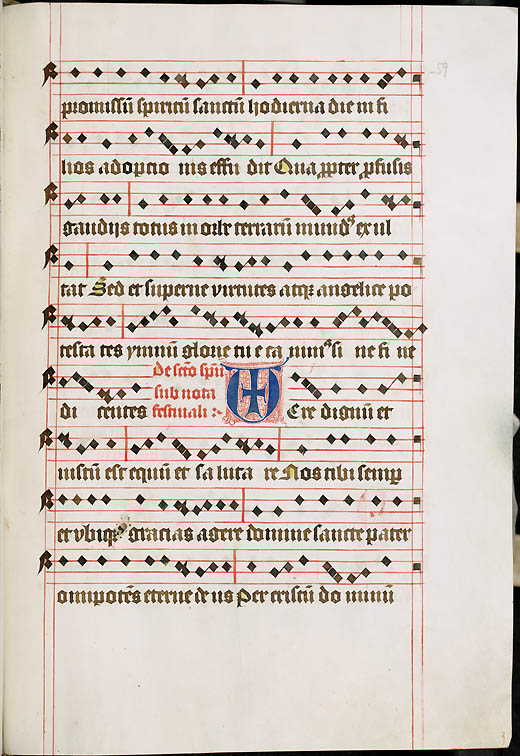 59
promissū spiritū sanctū hodierna die in fi
lios adoptio nis effu dit Qua ꝓpter ꝓfusis
gaudijs totus in orbe terrarū mundꝰ ex ul
tat Sed et superne virtutes atqꝫ angelice po
testa tes ymnū glorie tu e ca nūt si ne fi ne
de scō spū
sub nota
di centes festiuali Ere dignū et
iustū est equū et sa luta re Nos tibi semꝑ
et vbiqꝫ gracias agere domine sancte pater
omīpotēs eterne de us Per cristū do minū